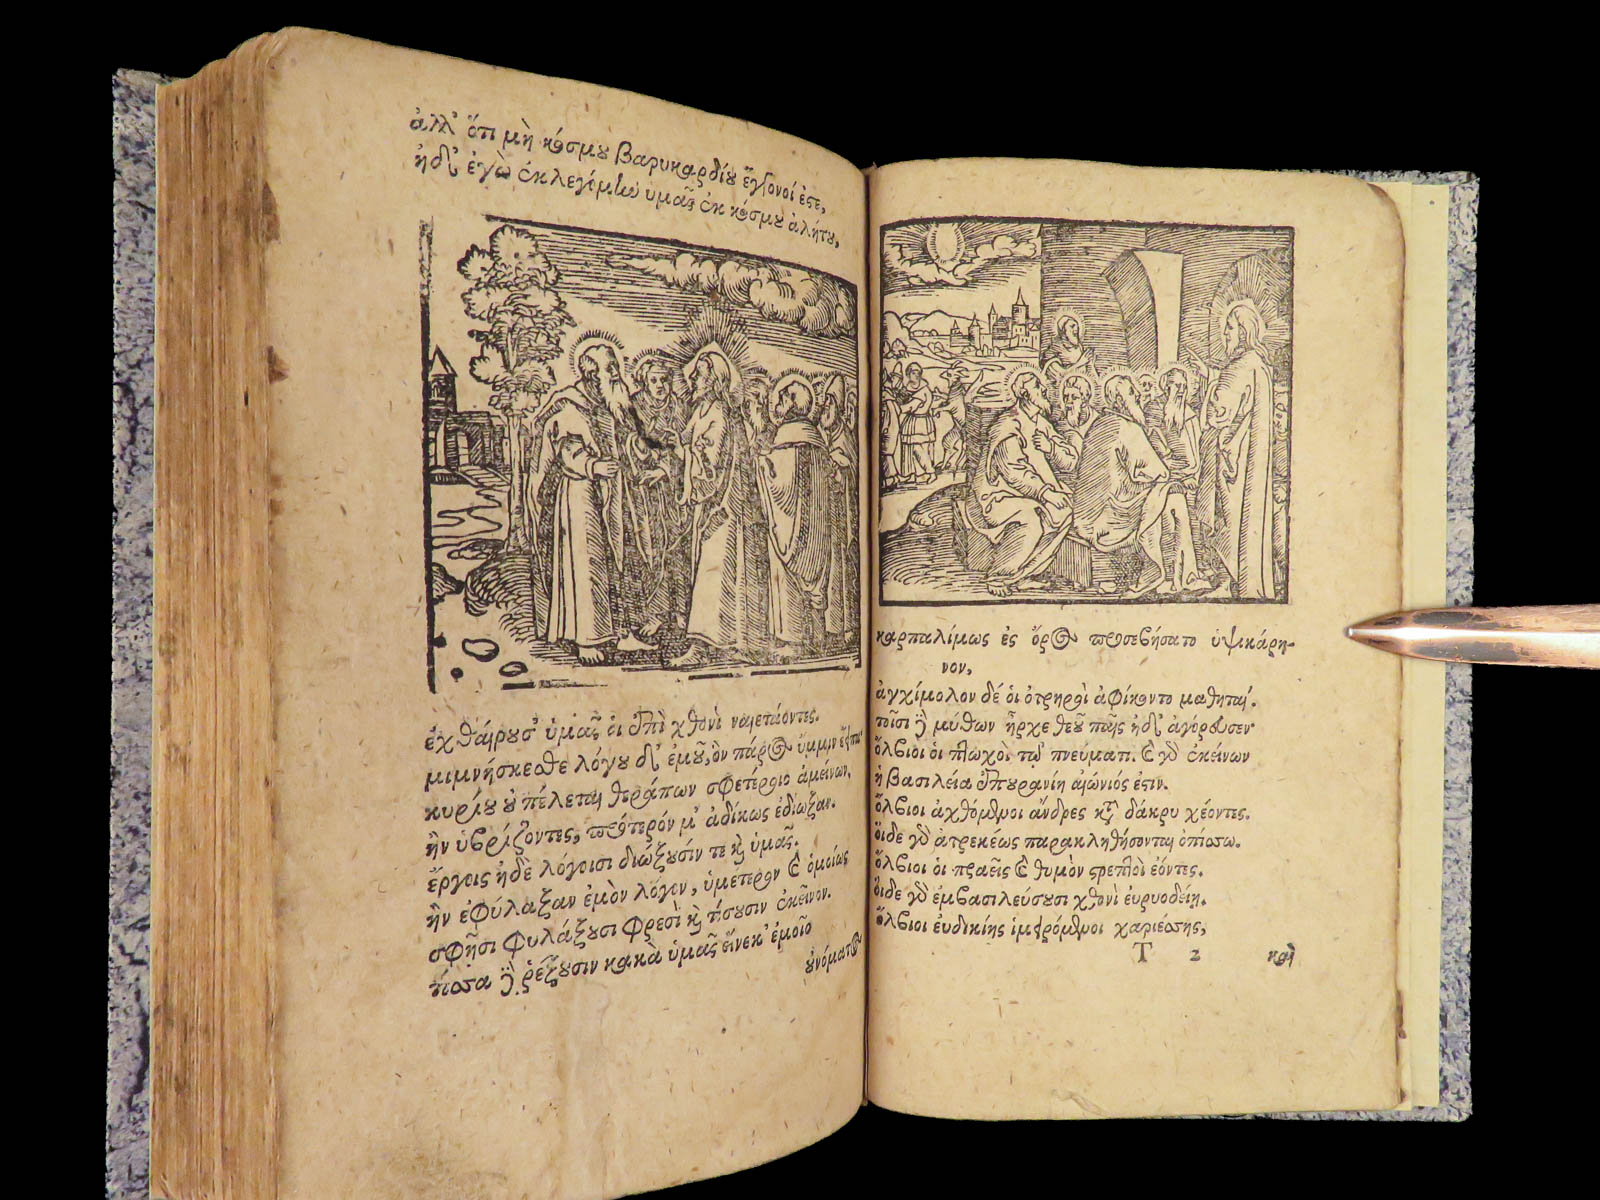 ἀλλ' ὅτι μὴ κόσμου βαρυκαρδίου ἔκγονοί ἐστε,
ἠδ' ἐγὼ ἐκλεγόμην ὑμᾶς ἐκ κόσμου ἀλήτου,
ἐχθαίρουσ' ὑμᾶς οἱ ἐπὶ χθονὶ ναιετάοντες.
μιμνήσκεσθε λόγου δ' ἐμοῦ, ὃν πάρος ὔμμιν
κυρίου οὐ πέλεται θεράπων σφετέροιο ἀμείνων.
ἢν ὑβρίζοντες, πρότερόν μ' ἀδίκως ἐδίωξαν.
ἔργοις ἠδὲ λόγοισι διώξουσίν τε καὶ ὑμᾶς.
ἢν ἐφύλαξαν ἐμὸν λόγον, ὑμέτερον καὶ ὁμοίως
σφῇσι φυλάξουσι φρεσὶ καὶ τίσουσιν ἐκεῖνον.
ταῦτα γὰρ ῥέξουσιν κακὰ ὑμᾶς εἵνεκ' ἐμοῖο
οὐνόματος
καρπαλίμως ἐς ὄρος προσεβήσατο ὑψικάρη-
νον,
ἀγχίμολον δέ οἱ ὀτρηροὶ ἀφίκοντο μαθηταί.
τοῖσι δὲ μύθων ἦρχε θεοῦ παῖς ἠδ' ἀγόρευσεν
ὄλβιοι οἱ πτωχοὶ τῷ πνεύματι. καὶ γὰρ ἐκείνων
ἡ βασιλεία ἐπουρανίη αἰώνιός ἐστιν.
ὄλβιοι ἀχθόμενοι ἄνδρες καὶ δάκρυ χέοντες.
οἵδε γὰρ ἀτρεκέως παρακληθήσονται ὀπίσσω.
ὄλβιοι οἱ πραεῖς καὶ θυμὸν στρεπτοὶ ἐόντες.
οἵδε γὰρ ἐμβασιλεύσουσι χθονὶ εὐρυοδείῃ.
ὄλβιοι εὐδικίης ἱμειρόμενοι χαριέσσης,
T 2 καὶ